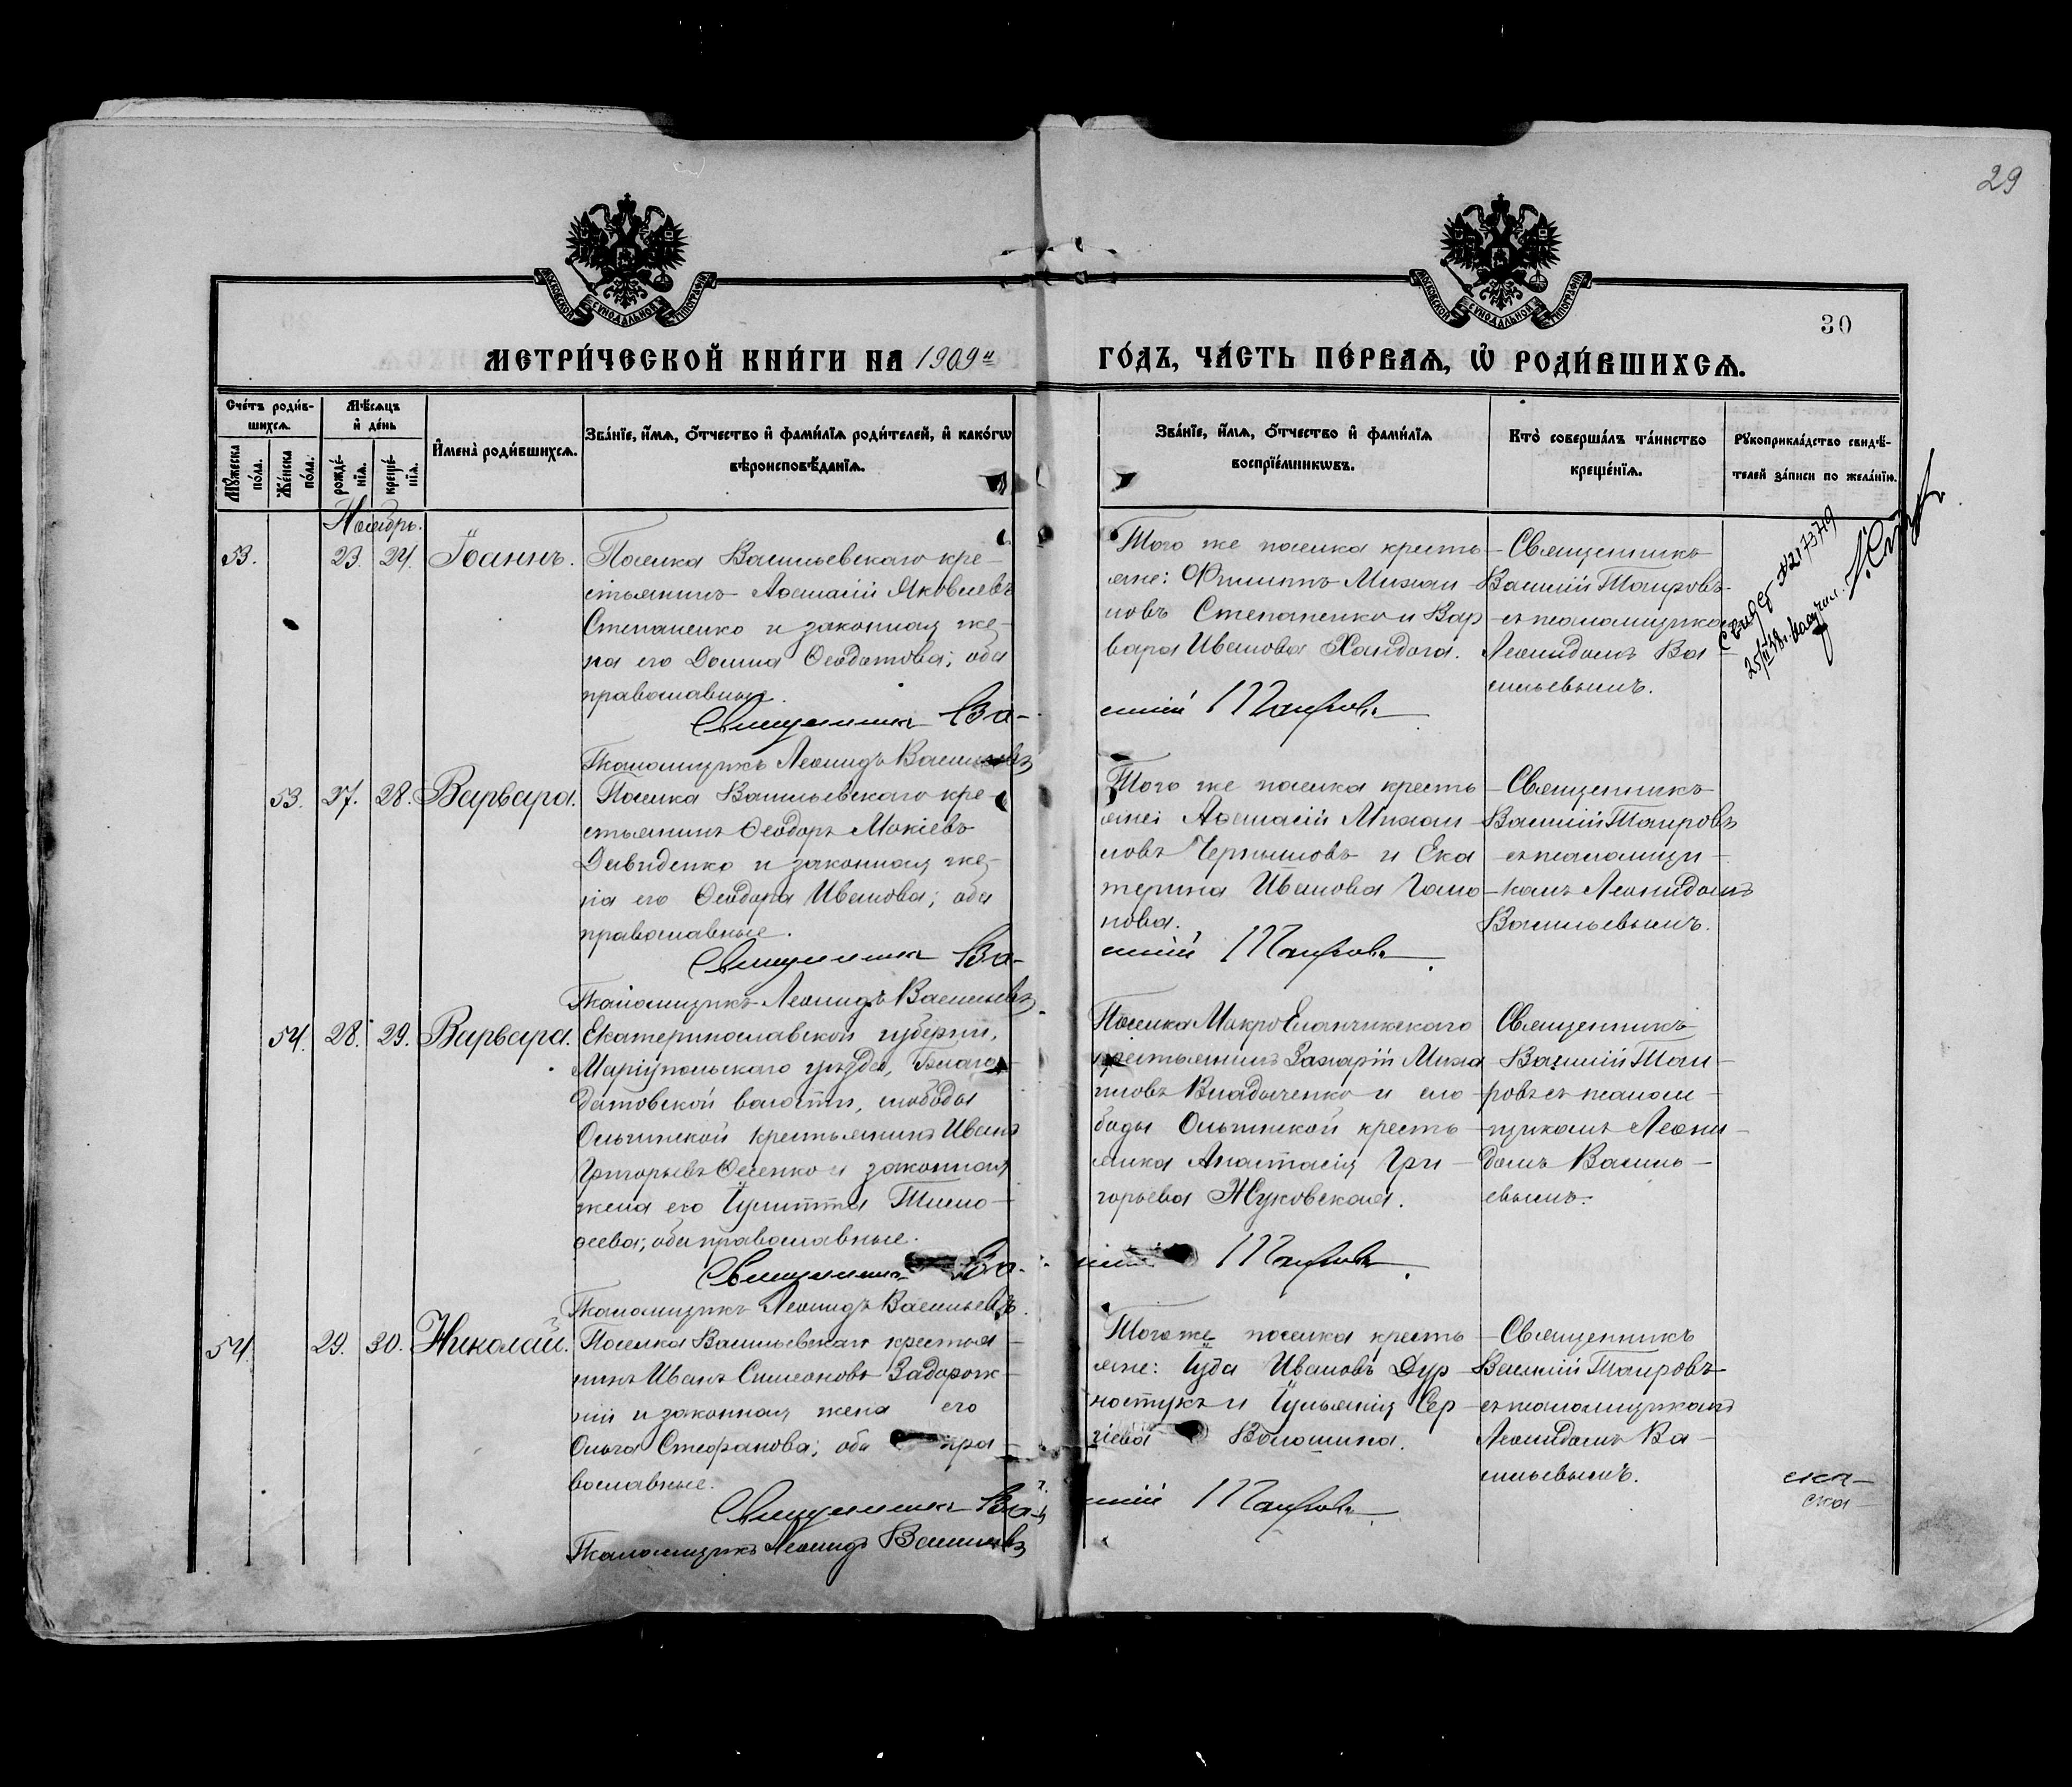 29
МОСКОВСКОЙ СѴНОДАЛЬНОЙ ТИПОГРАФІИ
МОСКОВСКОЙ СѴНОДАЛЬНОЙ ТИПОГРАФІИ
30
МЕТРИ́ЧЕСКОЙ КНИ́ГИ НА 1909й ГО́ДЪ, ЧА́СТЬ ПЕ́РВАѦ, Ѡ҆ РОДИ́ВШИХСѦ.
Сче́тъ роди́в-
шихсѧ.
Мꙋ́жеска по́ла.
Же́нска по́ла.
Мѣ́сѧцъ
и҆ де́нь
рожде́-
нїѧ.
креще́-
нїѧ.
И҆мена̀ роди́вшихсѧ.
Зва́нїе, и҆́мѧ, ѻ҆́тчество и҆ фами́лїѧ роди́телей, и҆ како́гѡ
вѣроисповѣ́данїѧ.
Зва́нїе, и҆́мѧ, ѻ҆́тчество и҆ фами́лїѧ
воспрїе́мникѡвъ.
Кто̀ соверша́лъ та́инство
креще́нїѧ.
Рꙋкоприкла́дство свидѣ́-
телей за́писи по жела́нїю.
Ноябрь.
53.
23.
24.
Іоаннъ.
Поселка Васильевскаго кре-
стьянинъ Аѳанасій Яковлевъ
Степаненко и законная же-
на его Домна Ѳеодотова; оба
православные.
Священникъ Ва-
Псаломщикъ Леонидъ Васильевъ
Того же поселка кресть
яне: Филиппъ Михаи
ловъ Степаненко и Вар
вара Иванова
силій Таировъ
Священникъ
Василій Таировъ
съ псаломщикомъ
Леонидомъ Ва
сильевымъ.
№
53.
27.
28.
Варвара.
Поселка Васильевскаго кре-
стьянинъ Ѳеодоръ Мокіевъ
Давиденко и законная же-
на его Ѳеодора Иванова; оба
православные.
Священникъ Ва-
Псаломщикъ Леонидъ Васильевъ
Того же поселка кресть
яне: Аѳанасій Михаи
ловъ Чернышовъ и Ека
терина Иванова Гапо
нова.
силій Таировъ
Священникъ
Василій Таировъ
съ псаломщи-
комъ Леонидомъ
Васильевымъ.
54.
28.
29.
Варвара.
Екатеринославской губерніи,
Маріупольскаго уѣзда, Благо-
датовской волости, слободы
Ольгинской крестьянинъ Иванъ
Григорьевъ и законная
жена его Іулитта Тимо-
ѳеева; оба православные.
Священникъ Ва-
Псаломщикъ Леонидъ Васильевъ.
Поселка Мокро Еланчикскаго
крестьянинъ Захарій Миха
иловъ Владыченко и сло
боды Ольгинской кресть
янка Анастасія Гри
горьева Жуковская.
силій Таировъ
Священникъ
Василій Таи-
ровъ съ псалом-
щикомъ Леони-
домъ Василь-
евымъ.
54.
29.
30.
Николай.
Поселка Васильевскаго крестья-
нинъ Иванъ Симеоновъ Задорож-
ній и законная жена его
Ольга Стефанова; оба пра-
вославные.
Священникъ Ва-
Псаломщикъ Леонидъ Васильевъ
Того же поселка кресть
яне: Іуда Ивановъ Дур
ностукъ и Іуліанія Сер
гіева Волошина.
силій Таировъ
Священникъ
Василій Таировъ
съ псаломщикомъ
Леонидомъ Ва-
сильевымъ.